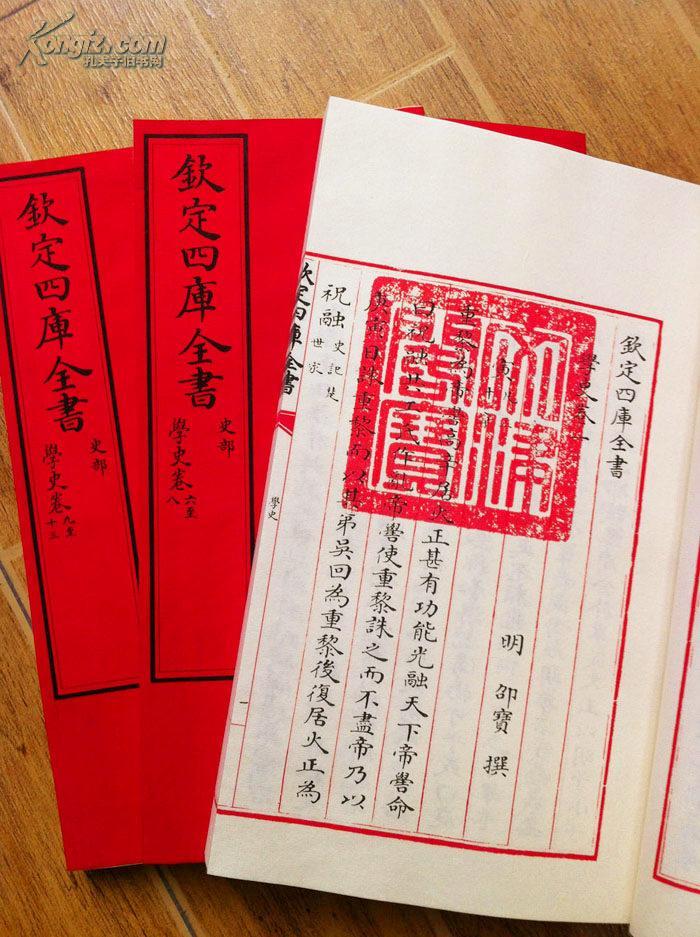 Kongfz.com
孔夫子旧书网
欽定四庫全書
史部
學史卷九至十三
欽定四庫全書
史部
學史卷六至八
欽定四庫全書
學史卷一
明 邵寶 撰
寅
重黎為帝嚳高辛居火正甚有功能光融天下帝嚳命
曰祝融共工氏作亂帝嚳使重黎誅之而不盡帝乃以
庚寅日誅重黎而以其弟吳回為重黎後復居火正為
祝融 史記楚世家
欽定四庫全書
學史
一